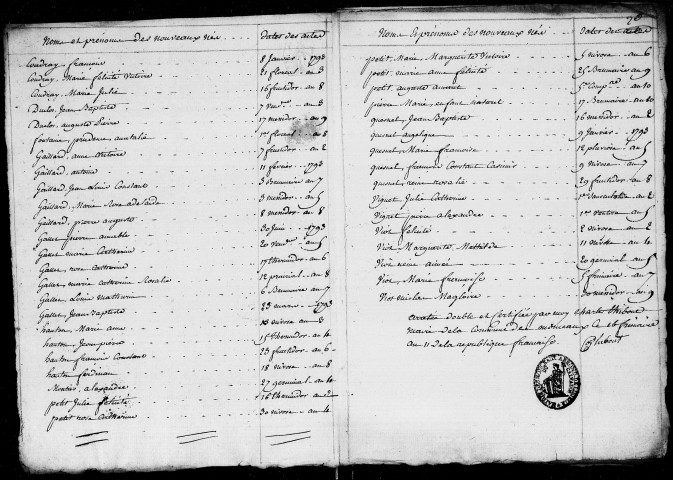 Noms et prénoms des nouveaux née dates des actes
Coudray, françoise 8 Janvier 1793
Coudray, Marie felicité Victoire 21 floreal an 3
Coudray, Marie Julie 16 fructidor an 8
Duclos, Jean Baptiste 7 vend.re an 3
Duclos, auguste Pierre 17 messidor an 9
fontaine, prudence amatalie 1er floreal an 8
Gaillard, anne Victoire 7 fructidor an 2
Gaillard, antoine 11 fevrier 1793
Gaillard, Jean Louis Constant 3 brumaire an 7
Gaillard, Marie Rose adelaide 3 messidor an 5
Gaillard, pierre auguste 8 messidor an 8
Gallet pierre aimable 30 Juin 1793
Gallet marie Catherine 20 vend.re an 5
Gallet, rose Catherine 17 thermidor an 4
Gallet, marie Catherine Rosalie 12 prairial an 8
Gallet, Louis mathurin 6 Brumaire an 7
Gallet, Jean Baptiste 23 mars 1793
hauton, Marie anne 18 nivose an 3
hauton, Jean pierre 15 thermidor an 4
hauton françois Constant 23 fructidor an 6
hauton ferdinan 18 nivose an 8
Montier, alexandre 27 germinal an 10
petit Julie felicité 16 thermidor an 2
petit rose Catherinne 30 nivose an 4
Noms et prénoms des nouveaux née dates des actes
petit, Marie Marguerite Victoire 5 nivose an 6
petit, marie anne felicité 25 Brumaire an 9
petit, auguste 5e Comp.re an 10
pierre Marie, enfant naturel 17 Brumaire an 10
quesnel, Jean Baptiste 16 messidor an 2
quesnel angelique 9 Janvier 1793
quesnel, Marie françoise 12 pluviose an 5
quesnel, françois Constant Casimir 9 nivose an 7
quesnel, reine rosalie 29 fructidor an 8
Vignet, Julie Catherine an 2
Vignet, alexandre 1er ventose an 5
Viot felicité 2 nivose an 2
Viot, Marguerite Mathilde 11 nivose an 4
Viot reine aimée 20 germinal an 5
Viot, Marie françoise 5 frimaire an 7
Viot nicolas Magloire 30 messidor an 9
arreté double et Certifié par moy Charle thibout
maire de la Commune de ce 16 frimaire
an 11 de la republique françoise. C thibout